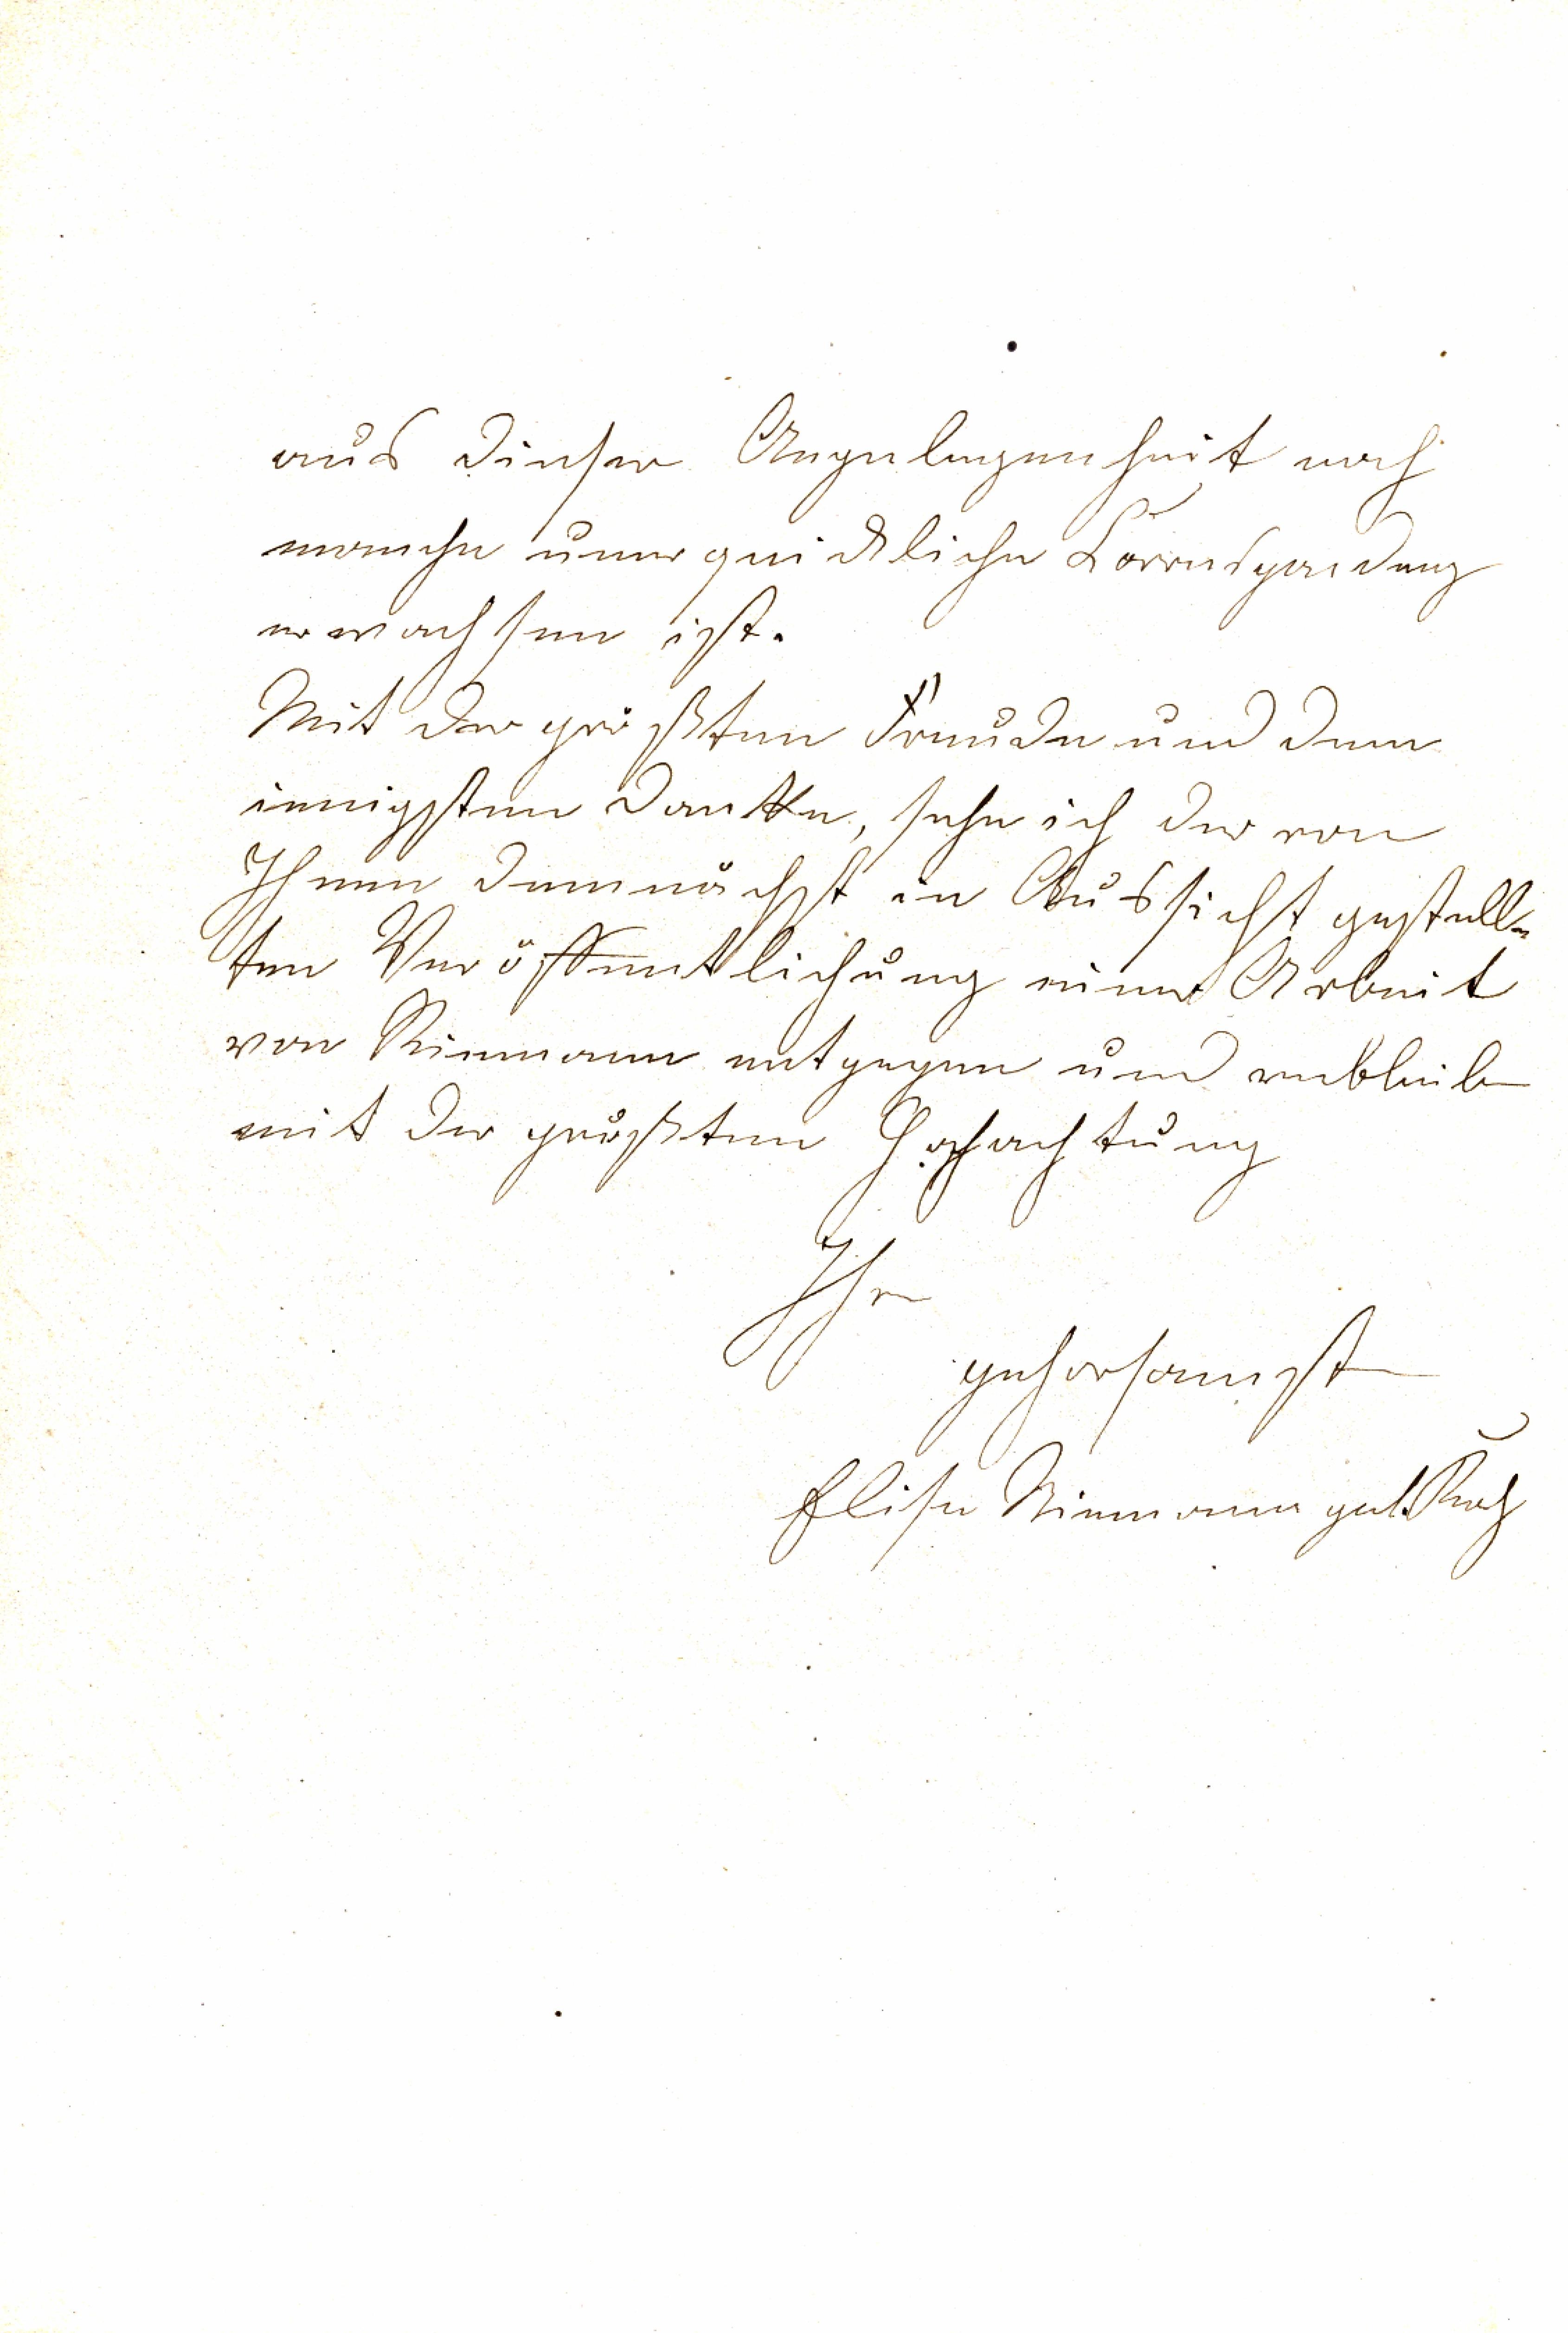 aus dieser Angelegenheit noch
manche unerquickliche Correspondenz
erwachsen ist.
Mit der größten Freude und dem
innigsten Danke, sehe ich der von
Ihnen demnächst in Aussicht gestell-
ten Veröffentlichung einer Arbeit
von Riemann entgegen und verbleibe
mit der größten Hochachtung
Ihre
gehorsamst
Elise Riemann geb. Koch